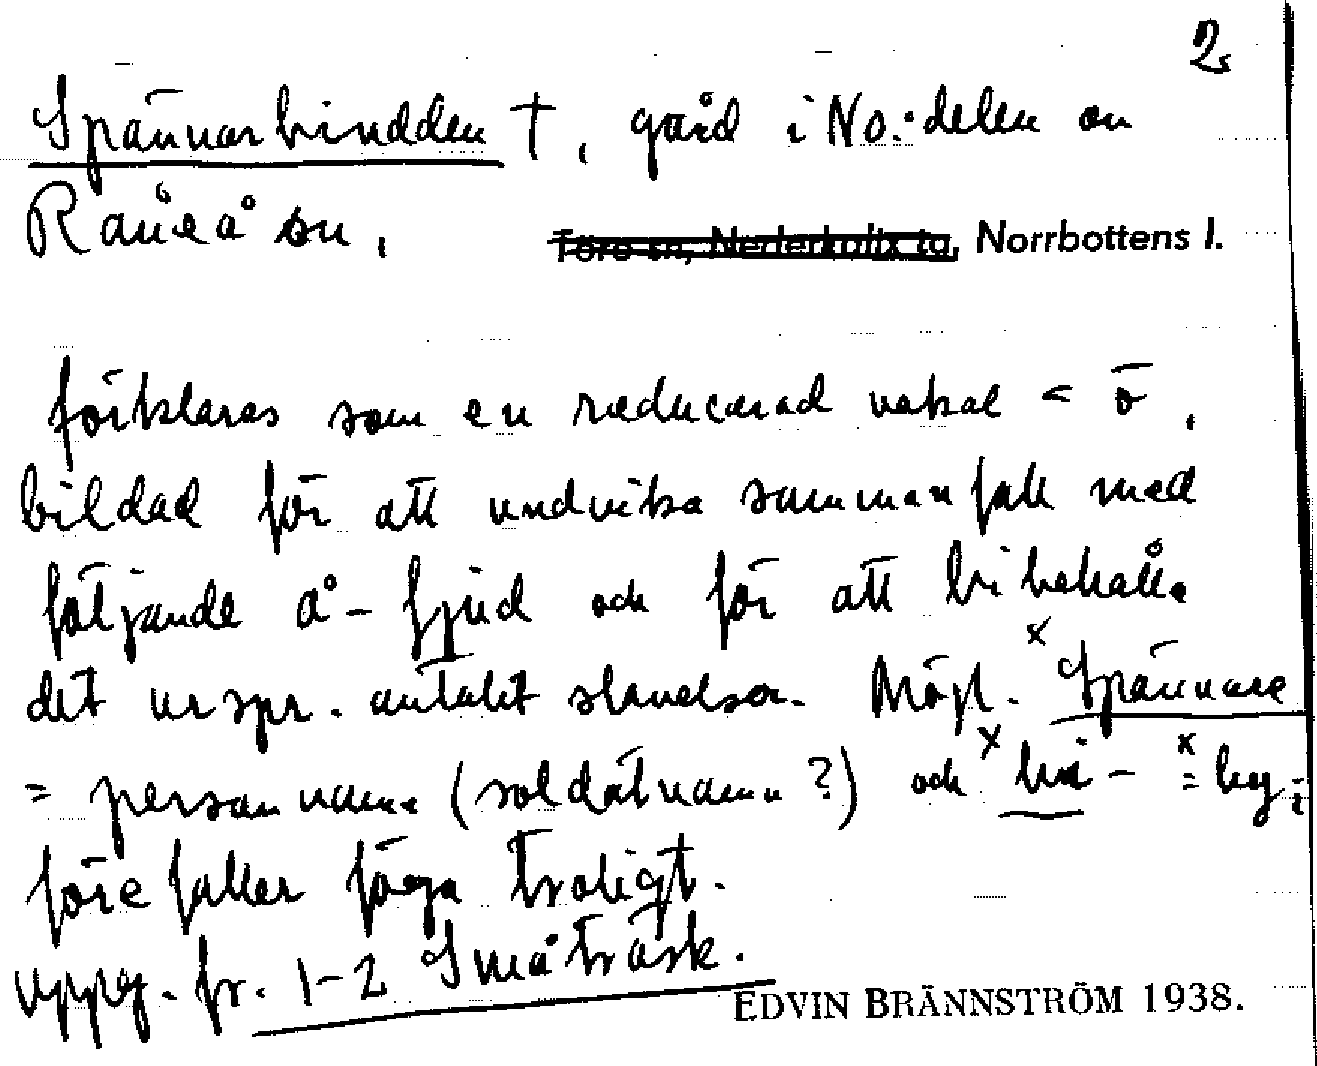 2.
Spännarbindden †, gård i No.-delen av
Råneå sn, Töre sn, Nederkalix tg, Norrbottens l.
förklaras som en reducerad vokal < ō,
bildad för att undvika sammanfall med
följande å-ljud och för att bibehålla
det urspr. antalet stavelser. Möjl. ˣSpännare
= personnamn (soldatnamn?) och ˣbi- ˣ= by-:
förefaller föga troligt.
Uppg. fr. 1-2 Småträsk.
EDVIN BRÄNNSTRÖM 1938.